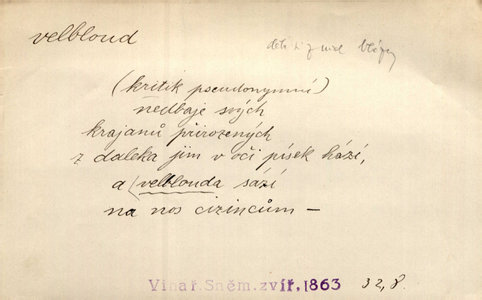 velbloud
(kritik pseudonymní)
nedbaje svých
krajanů přirozených
z daleka jim v oči písek hází,
a velblouda sází
na nos cizincům —
Vinař. Sněm. zvíř. 1863 32,8.